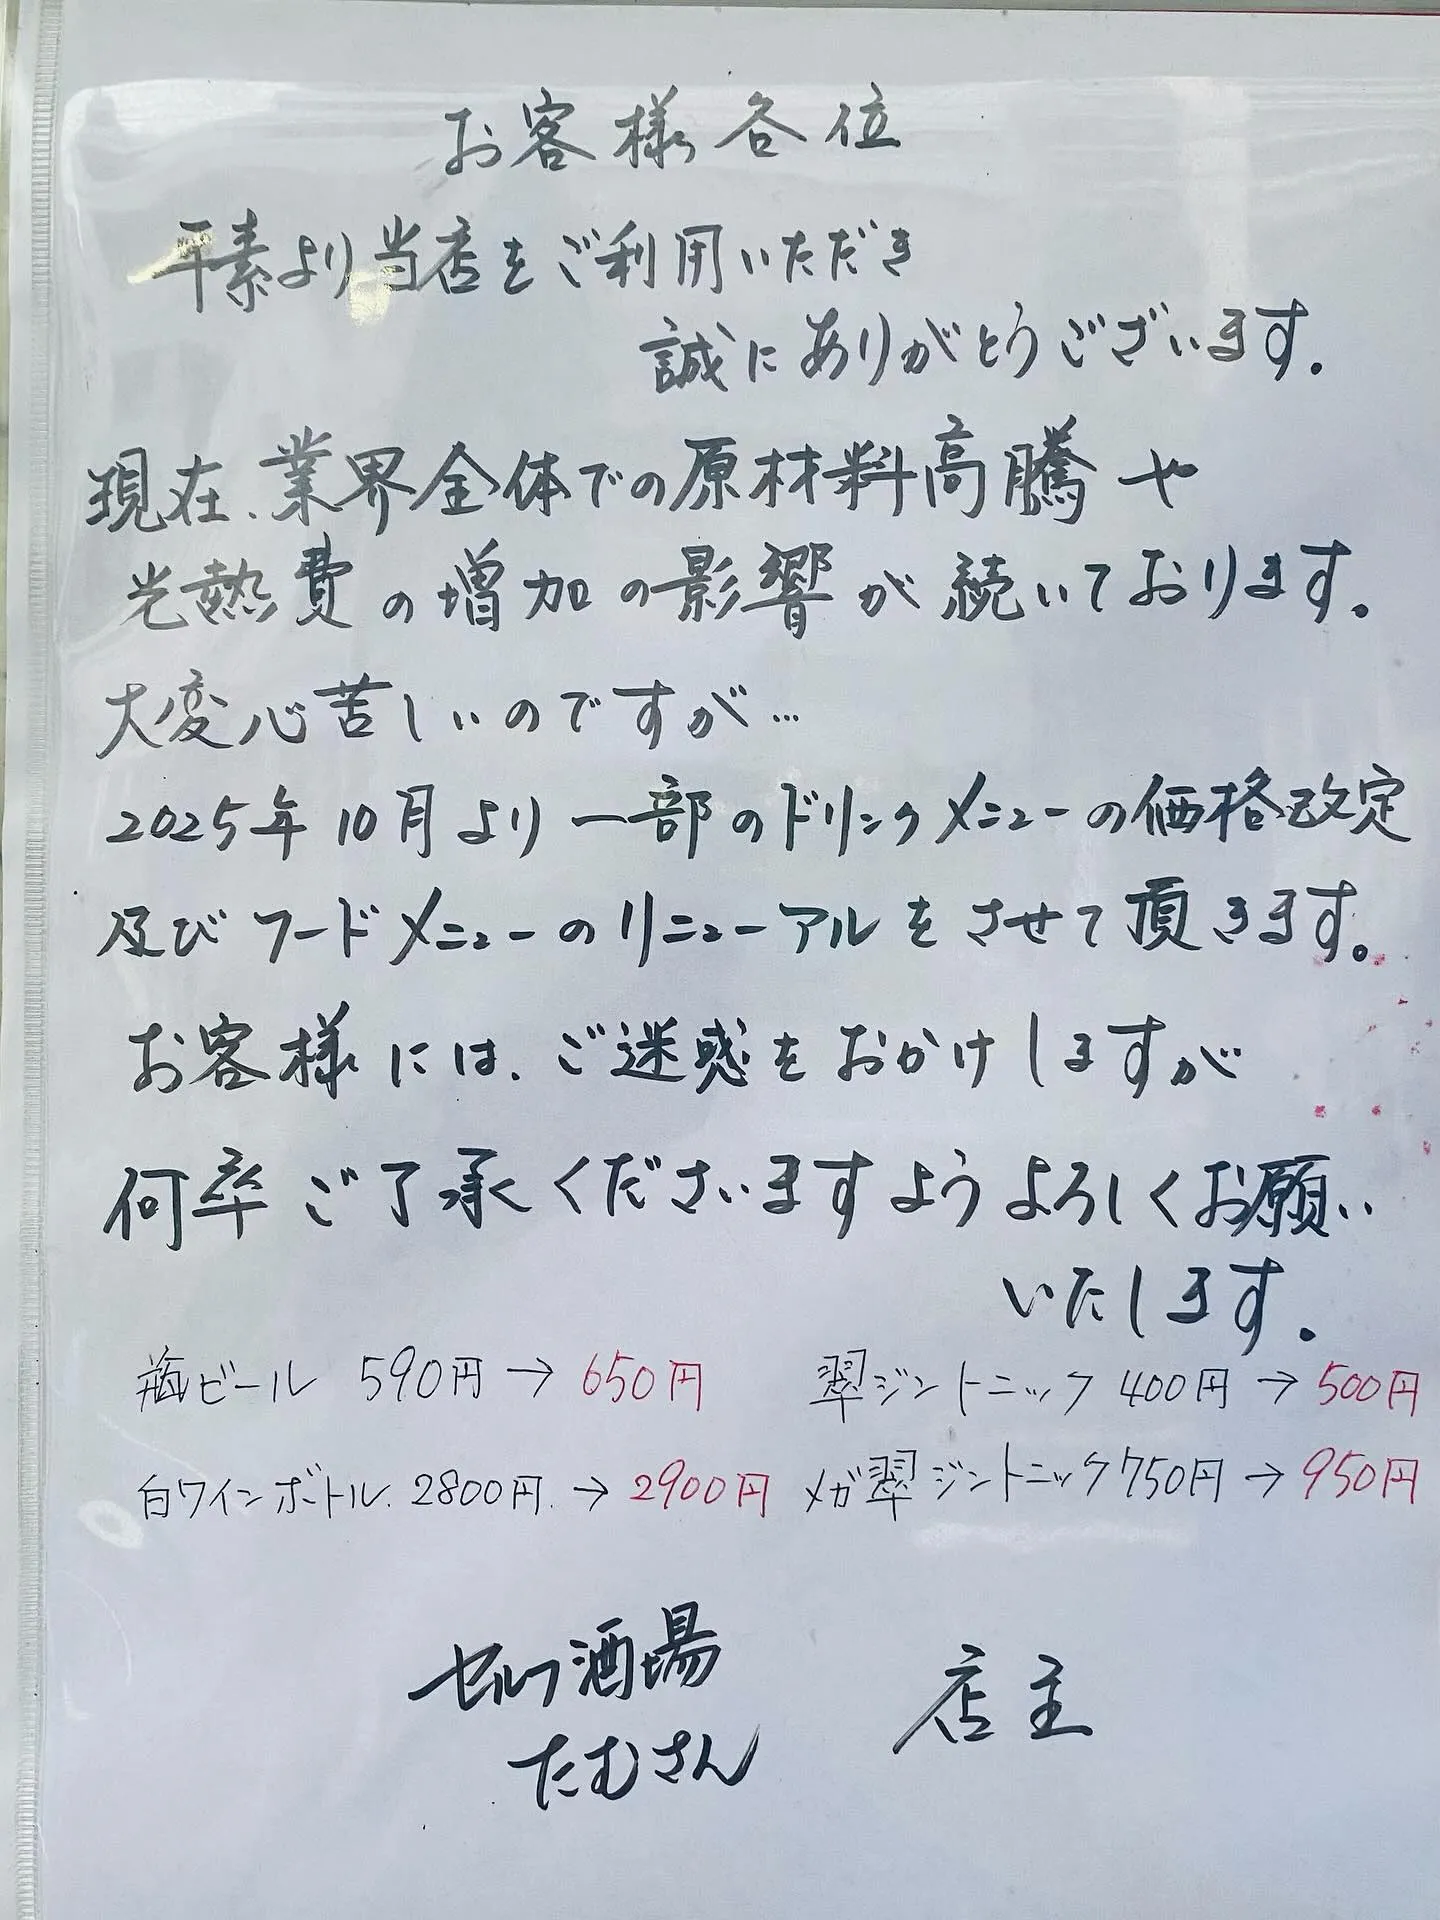 お客様各位
平素より当店をご利用いただき
誠にありがとうございます。
現在、業界全体での原材料高騰や
光熱費の増加の影響が続いております。
大変心苦しいのですが…
2025年10月より一部のドリンクメニューの価格改定
及びフードメニューのリニューアルをさせて頂きます。
お客様には、ご迷惑をおかけしますが
何卒ご了承くださいますようよろしくお願い
いたします。
瓶ビール 590円→650円 翠ジントニック 400円→500円
白ワインボトル 2800円→2900円 メガ翠ジントニック750円→950円
セルフ酒場 店主
たむさん